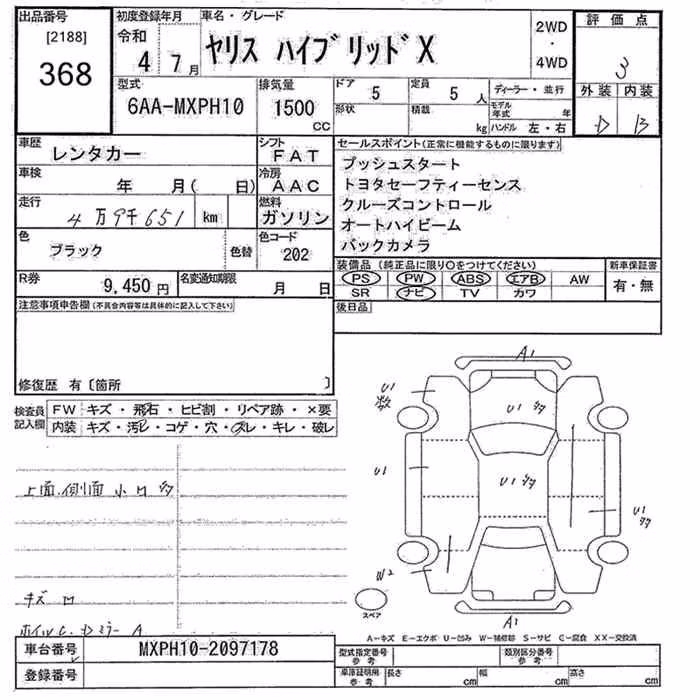 出品番号
[2188]
368
初度登録年月
令和
4 7月
車名・グレード
ヤリス ハイブリッド X
2WD
・
4WD
評価点
3
外装 内装
D B
型式
6AA-MXPH10
排気量
1500
CC
ドア
5
形状
定員
5 人
積載
kg
ディーラー・並行
モデル年式 年
ハンドル 左・右
車歴
レンタカー
シフト
FAT
車検
年 月( 日)
冷房
AAC
走行
4万9千651 km
燃料
ガソリン
色
ブラック
色替
色コード
202
R券
9,450 円
名変通知期限
月 日
セールスポイント(正常に機能するものに限ります)
プッシュスタート
トヨタセーフティーセンス
クルーズコントロール
オートハイビーム
バックカメラ
装備品 (純正品に限り○をつけてください)
PS PW ABS エアB AW
SR ナビ TV カワ
新車保証書
有・無
後日品
注意事項申告欄(不具合内容等は具体的に記入して下さい)
修復歴 有〔箇所 〕
検査員
記入欄
FW キズ・飛石・ヒビ割・リペア跡・×要
内装 キズ・汚レ・コゲ・穴・スレ・キレ・破レ
上面、側面 小凹 多
キズ 凹
A1
U1
数
U1 多
U1
U1 多
U1
多
W2
A1
スペア
A-キズ E-エクボ U-凹み W-補修跡 S-サビ C-腐食 XX-交換済
車台番号
MXPH10-2097178
登録番号
型式指定番号
参考
類別区分番号
参考
車庫証明用
参考
長さ cm
幅 cm
高さ cm